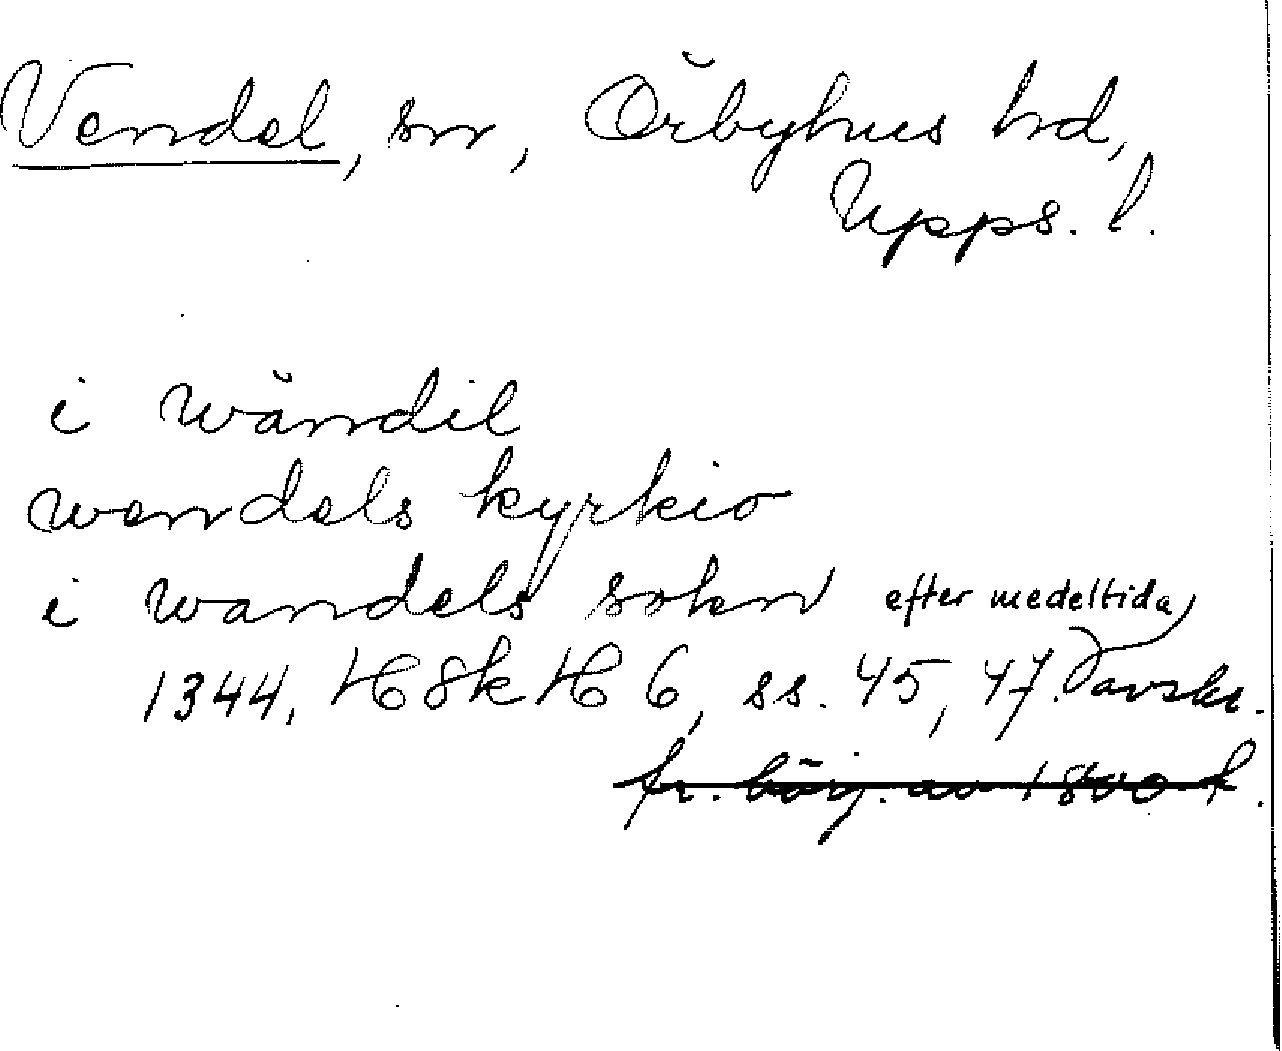 Vendel, sn, Örbyhus hd,
Upps. l.
i wändil
wendels kyrkio
i wandels sokn efter medeltida
1344, H Sk H 6, ss. 45, 47. avskr.
fr. börj. av 1800-t.